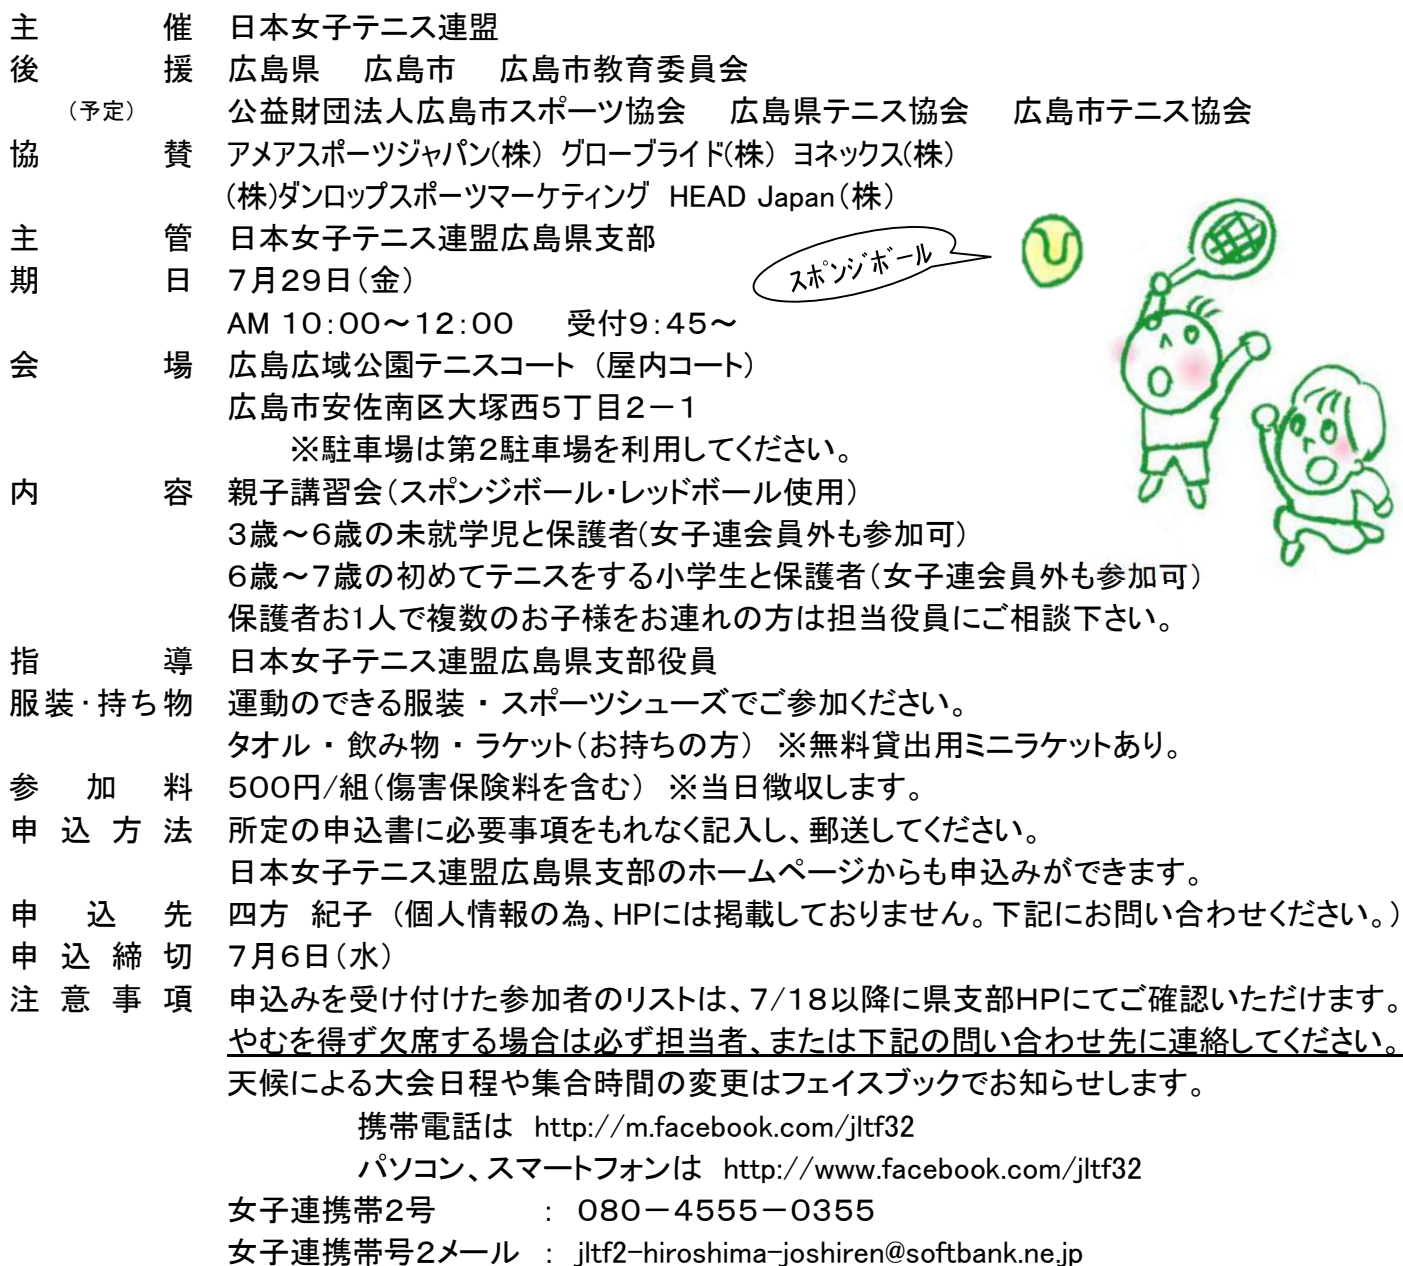 主催 日本女子テニス連盟
後援 広島県 広島市 広島市教育委員会
(予定) 公益財団法人広島市スポーツ協会 広島県テニス協会 広島市テニス協会
協賛 アメアスポーツジャパン(株) グローブライド(株) ヨネックス(株)
(株)ダンロップスポーツマーケティング HEAD Japan(株)
主管 日本女子テニス連盟広島県支部
スポンジボール
期日 7月29日(金)
AM 10:00~12:00 受付9:45~
会場 広島広域公園テニスコート (屋内コート)
広島市安佐南区大塚西5丁目2-1
※駐車場は第2駐車場を利用してください。
内容 親子講習会(スポンジボール・レッドボール使用)
3歳~6歳の未就学児と保護者(女子連会員外も参加可)
6歳~7歳の初めてテニスをする小学生と保護者(女子連会員外も参加可)
保護者お1人で複数のお子様をお連れの方は担当役員にご相談下さい。
指導 日本女子テニス連盟広島県支部役員
服装・持ち物 運動のできる服装 ・ スポーツシューズでご参加ください。
タオル ・ 飲み物 ・ ラケット(お持ちの方) ※無料貸出用ミニラケットあり。
参加料 500円/組(傷害保険料を含む) ※当日徴収します。
申込方法 所定の申込書に必要事項をもれなく記入し、郵送してください。
日本女子テニス連盟広島県支部のホームページからも申込みができます。
申込先 四方 紀子 (個人情報の為、HPには掲載しておりません。下記にお問い合わせください。)
申込締切 7月6日(水)
注意事項 申込みを受け付けた参加者のリストは、7/18以降に県支部HPにてご確認いただけます。
やむを得ず欠席する場合は必ず担当者、または下記の問い合わせ先に連絡してください。
天候による大会日程や集合時間の変更はフェイスブックでお知らせします。
携帯電話は http://m.facebook.com/jltf32
パソコン、スマートフォンは http://www.facebook.com/jltf32
女子連携帯2号 : 080-4555-0355
女子連携帯号2メール : jltf2-hiroshima-joshiren@softbank.ne.jp